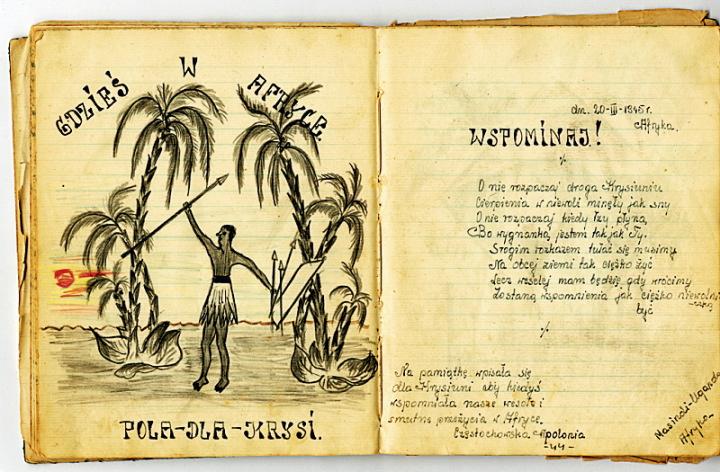 GDZIEŚ W AFRYCE
POLA-DLA-KRYSI.
dn. 20-III-1945 r.
Afryka.
WSPOMINAJ!
O nie rozpaczaj droga Krysiuniu
Cierpienia w niewoli minęły jak sny
O nie rozpaczaj kiedy łzy płyną
Bo wygnanką jestem tak jak Ty.
Srogim rozkazem tułać się musimy
Na obcej ziemi tak ciężko żyć
Lecz weselej nam będzie gdy wrócimy
Zostaną wspomnienia jak ciężko niewolni-
czką
być
Na pamiątkę wpisała się
dla Krysiuni aby kiedyś
wspomniała nasze wesołe i
smutne przeżycia w Afryce.
Częstochowska Apolonia
-44-
Masindi-Uganda
Afryka-